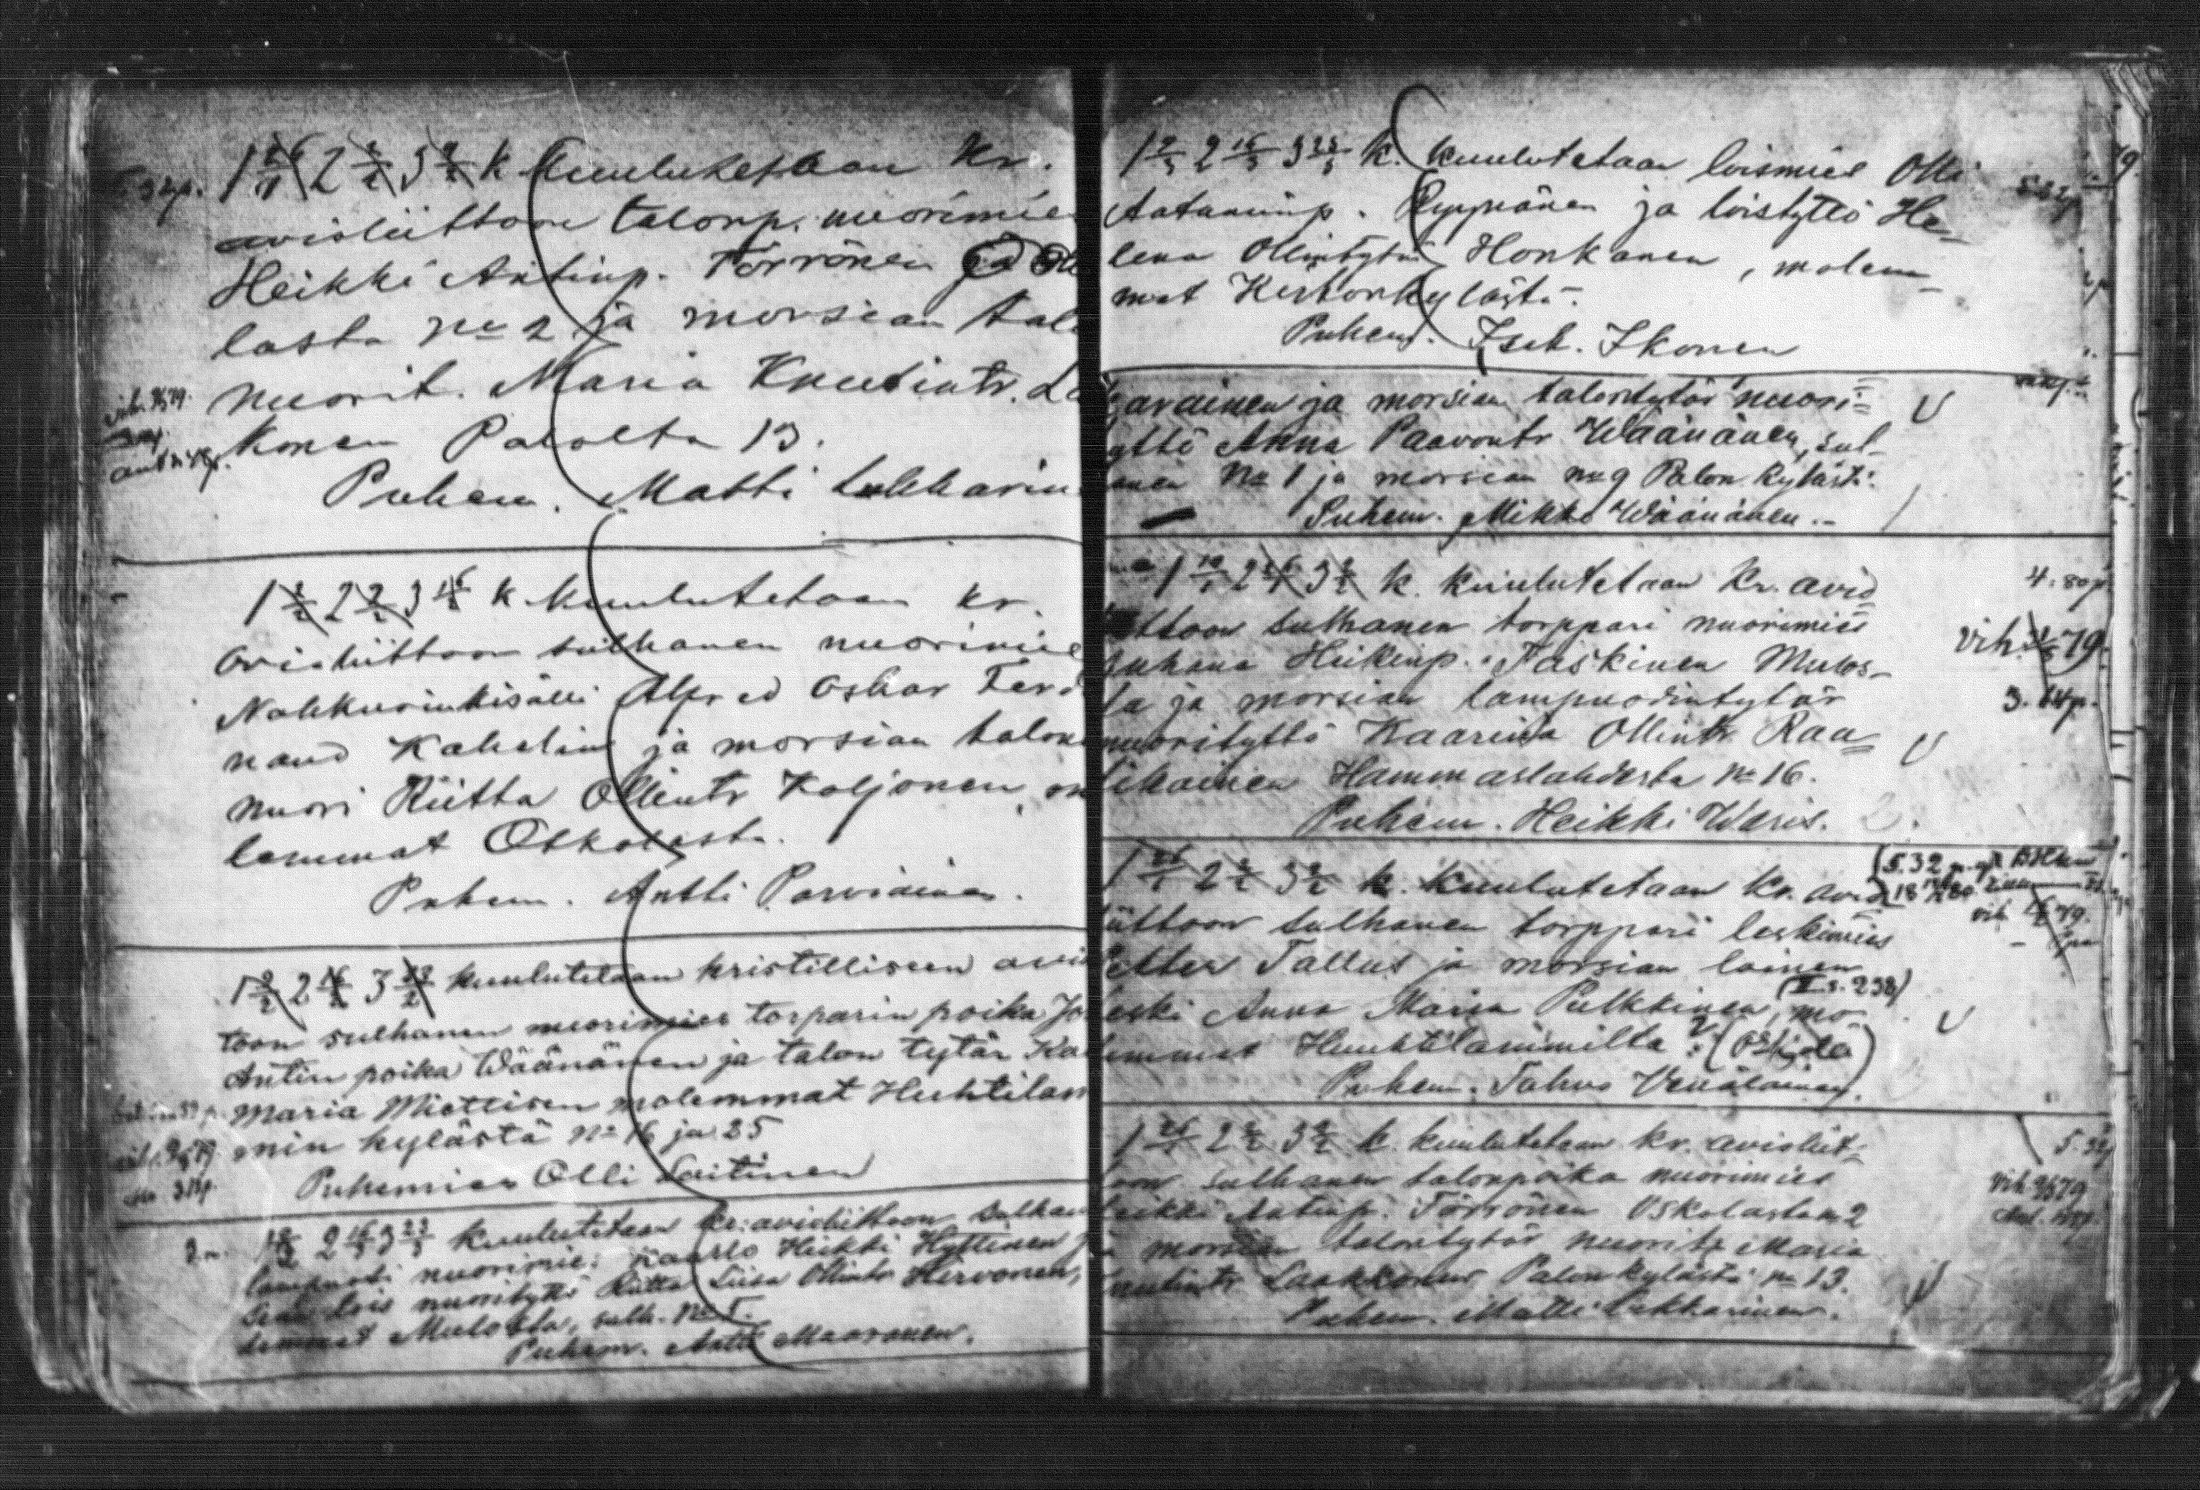 1 26/1 2 2/2 3 9/2 k kuulutetaan kr.
avioliittoon talonp. nuorimies
Heikki Antinp. Törrönen
lasta No 2 ja morsian talo
nuorit. Maria Knuutintr. La
konen Palolta 13.
Puhem. Matti Lukkarin
1 2/2 2 9/2 3 16/2 k kuulutetaan kr.
avioliittoon sulhanen nuorimies
Nahkurinkisälli Alfred Oskar Ferd
nand Kahelin ja morsian talon
nuori Riitta Ollintr Koljonen,
lemmat Oskolasta.
Puhem. Antti Parviainen.
1 9/2 2 16/2 3 23/2 kuulutetaan kristilliseen avio
toon sulhanen nuorimies torparin poika Jo
Antin poika Wäänänen ja talon tytär Ka
Maria Miettisen molemmat Huhtilam
min kylästä No 16 ja 25
Puhemies Olli Laitinen
2 16/3 3 23/3 kuulutetaan kr. avioliittoon sulhan
lampuoti nuorimies Kaarlo Heikki Hyttinen
lois nuorityttö Riitta Liisa Ollintr Hirvonen,
lemmat Mulosta, sulh. No 5.
Puhem. Antti Maaranen.
1 9/3 2 16/3 3 23/3 k. kuulutetaan loismies Olli
Aataminp. Ryynänen ja loistyttö He-
lena Ollintytär Honkanen, molem-
mat Kerkonkylästä.
Puhem. Isak. Ikonen
arainen ja morsian talontytär nuori=
yttö Anna Paavontr Wäänänen, sul-
anen No 1 ja morsian No 9 Palon kylästä.
Puhem. Mikko Wäänänen.
1 19/1 2 26/1 3 2/2 k. kuulutetaan kr. avio
ittoon sulhanen torppari nuorimies
Juhana Heikinp. Taskinen Mulos-
ta ja morsian lampuodintytär
nuorityttö Kaarina Ollintr Rau=
tikainen Hammaslahdesta No 16.
Puhem. Heikki Waris.
4. 80 p.
vih. 79.
1 26/1 2 2/2 3 9/2 k. kuulutetaan kr. avio
iittoon sulhanen torppari leskimies
Petter Tallus ja morsian loinen
leski Anna Maria Pulkkinen, mo
(II s. 238)
lemmat Huuhtilammilta
Puhem. Tahvo Venäläinen.
1 26/1 2 2/2 3 9/2 k. kuulutetaan kr. avioliit=
toon sulhanen talonpoika nuorimies
Heikki Antinp. Törrönen Oskolasta No 2
ja morsian talontytär nuorit. Maria
Knuutintr Laakkonen Palon kylästä No 13.
Puhem. Matti Lukkarinen.